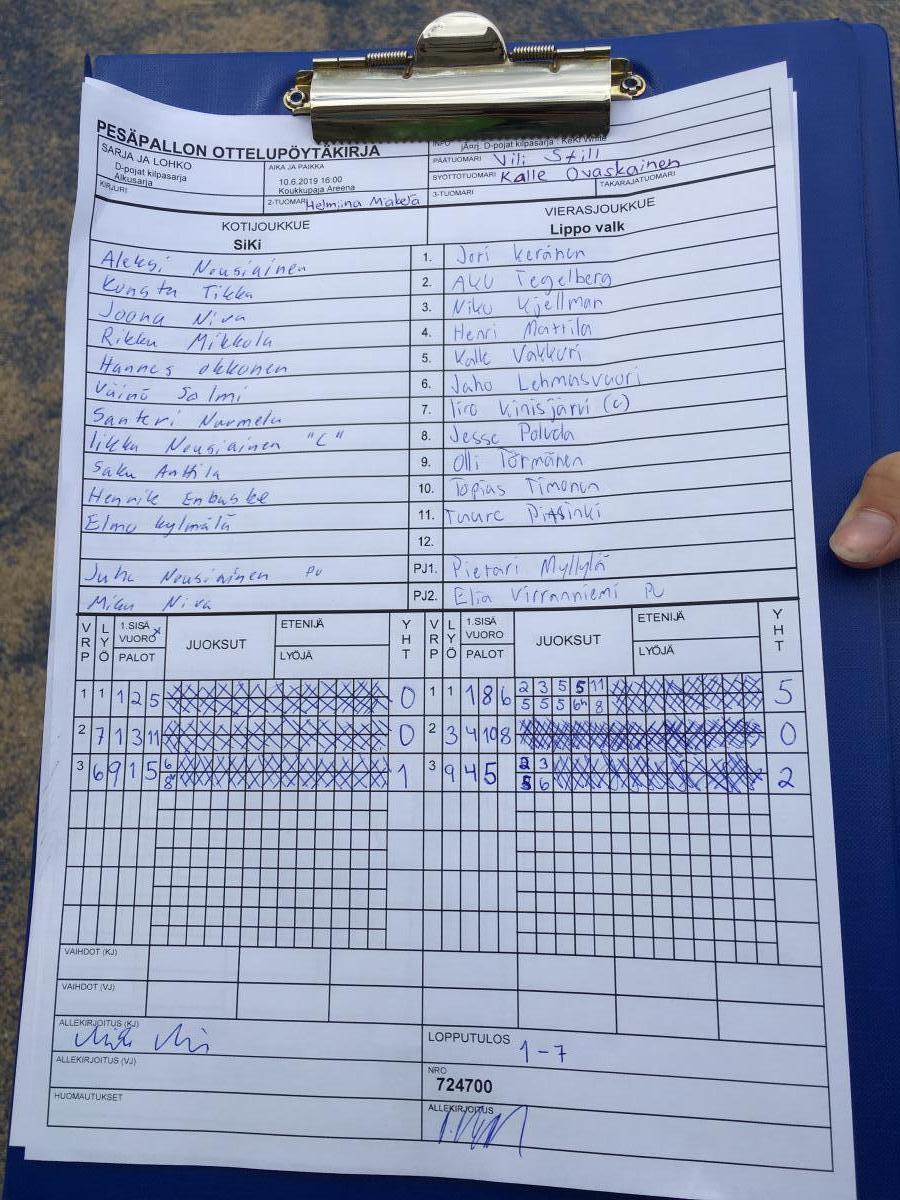 PESÄPALLON OTTELUPÖYTÄKIRJA
SARJA JA LOHKO
D-pojat kilpasarja
Alkusarja
KIRJURI
AIKA JA PAIKKA
10.6.2019 16:00
Koukkupaja Areena
2-TUOMARI Helmiina Mäkelä
INFO
PÄÄTUOMARI Vili Still
SYÖTTÖTUOMARI Kalle Ovaskainen
3-TUOMARI
TAKARAJATUOMARI
KOTIJOUKKUE
SiKi
VIERASJOUKKUE
Lippo valk
Aleksi Nousiainen 1. Jori Keränen
Konsta Tikka 2. Aku Tegelberg
Joona Niva 3. Niko Kjellman
Rikku Mikkola 4. Henri Mattila
Hannes Okkonen 5. Kalle Vakkuri
Väinö Salmi 6. Juho Lehmusvuori
Santeri Nurmela 7. Iiro Kinisjärvi (c)
Iikka Nousiainen "C" 8. Jesse Poluda
Saku Anttila 9. Olli Törmänen
Henrik Enbuske 10. Topias Timonen
Elmo Kylmälä 11. Tuure
12.
Juha Nousiainen PU PJ1. Pietari Myllylä
Miku Niva PJ2. Elia Virranniemi PU
VRP LYÖ 1.SISÄ VUORO X PALOT JUOKSUT ETENIJÄ LYÖJÄ YHT VRP LYÖ 1.SISÄ VUORO PALOT JUOKSUT ETENIJÄ LYÖJÄ YHT
1 1 1 2 5 0 1 1 1 8 6 2 3 5 5 11 5
5 5 5 6 8
2 7 1 3 11 0 2 3 4 10 8 0
3 6 9 1 5 6 1 3 9 4 5 2 3 2
8 5 6
VAIHDOT (KJ)
VAIHDOT (VJ)
ALLEKIRJOITUS (KJ)
ALLEKIRJOITUS (VJ)
HUOMAUTUKSET
LOPPUTULOS 1-7
NRO
724700
ALLEKIRJOITUS